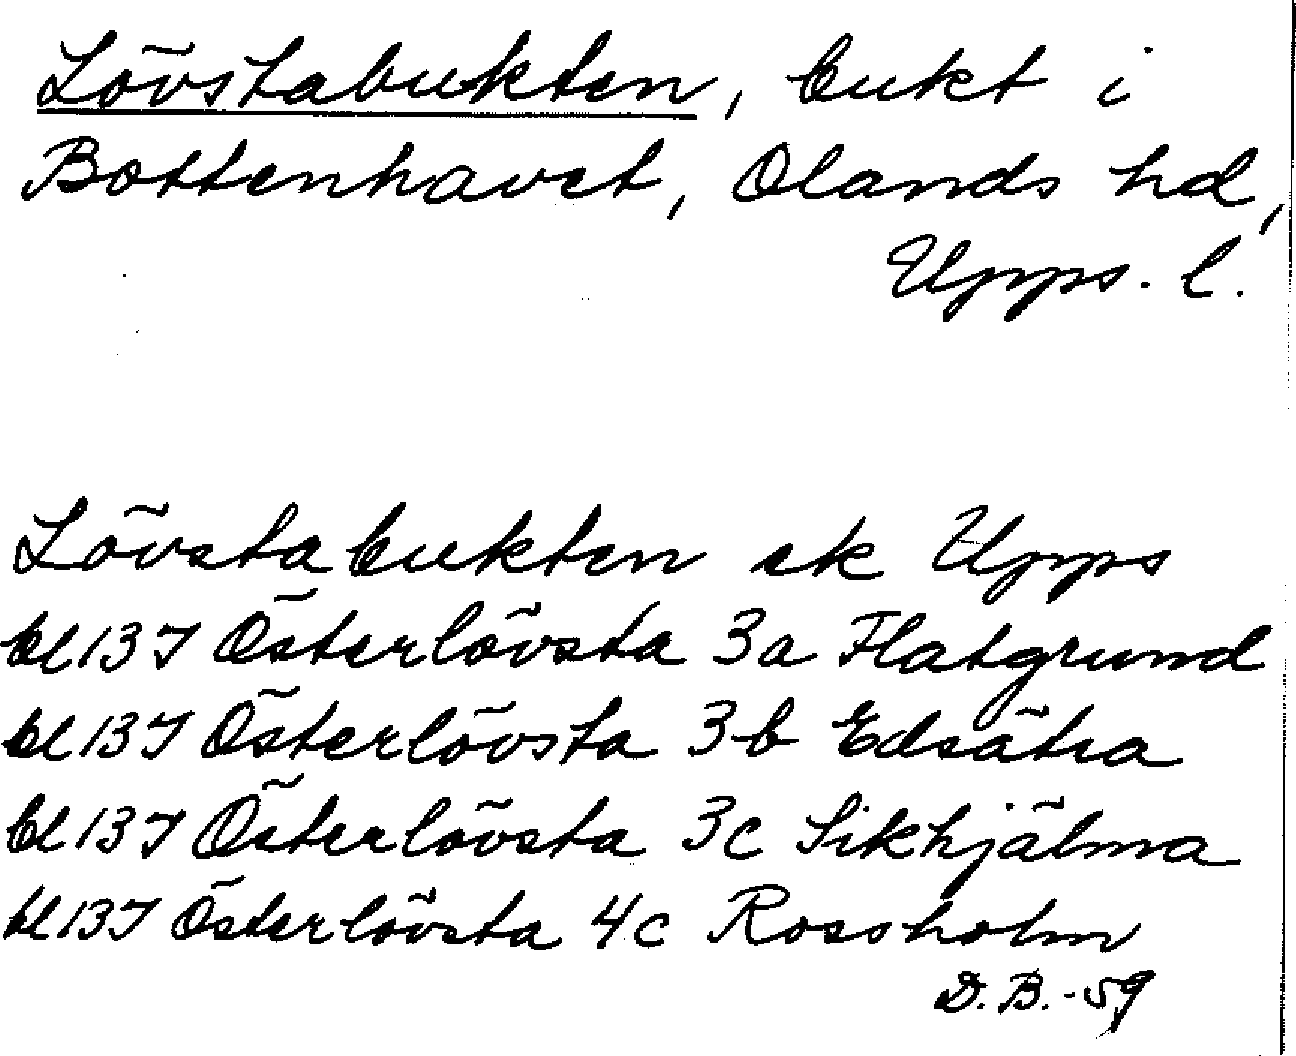 Lövstabukten, bukt i
Bottenhavet, Olands hd,
Upps. l.
Lövstabukten ek Upps
bl 13I Österlövsta 3a Flatgrund
bl 13I Österlövsta 3b Edsätra
bl 13I Österlövsta 3c Sikhjälma
bl 13I Österlövsta 4c Rossholm
D.B.-59